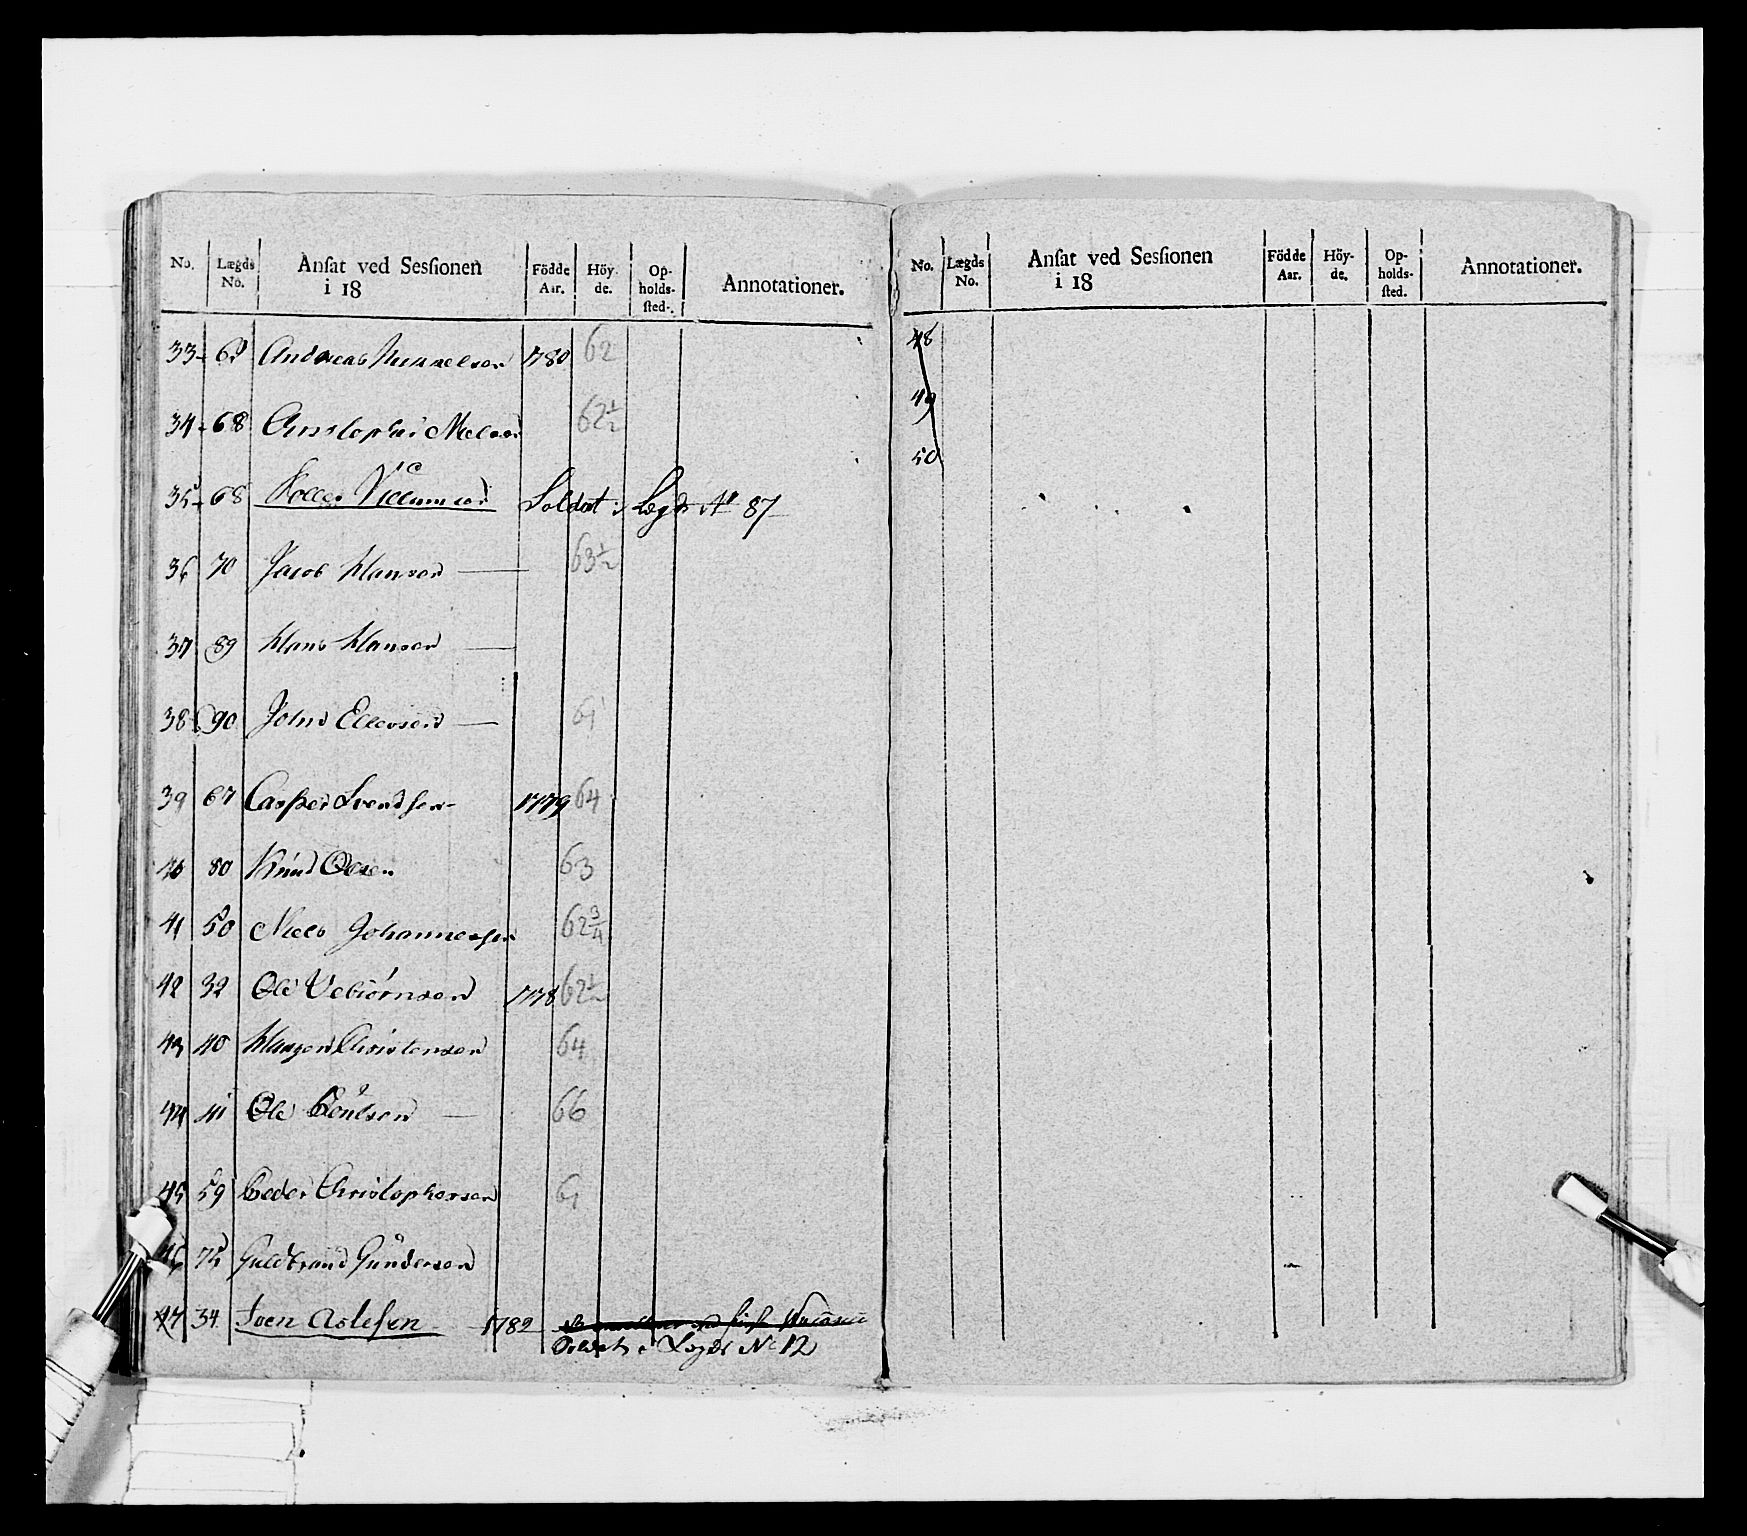 No. Lægds No. Ansat ved Sessionen i 18 Födde Aar. Höy- de. Op- holds- sted. Annotationer.
33 - Andreas 1780 62
34 - 68 62 1/2
35 - 68 Soldat i Lægds No 87
36 70 Jacob Hansen — 63 1/2
37 89 Hans Hansen —
38 90 John Ellevsen — 61
39 67 Casper Svendsen - 1779 64
40 80 Knud Olsen 63
41 50 Niels Johannessen 62 3/4
42 32 Ole Vebiørnsen 1778 62 1/2
43 40 Christensen 64
44 41 Ole Poulsen — 66
45 59 Peder Christophersen 61
46 75 Guldbrand Gundersen
47 34 Sven Aslesen - 1782
Soldat i Lægds No 12
No. Lægds No. Ansat ved Sessionen i 18 Födde Aar. Höy- de. Op- holds- sted. Annotationer.
48
49
50